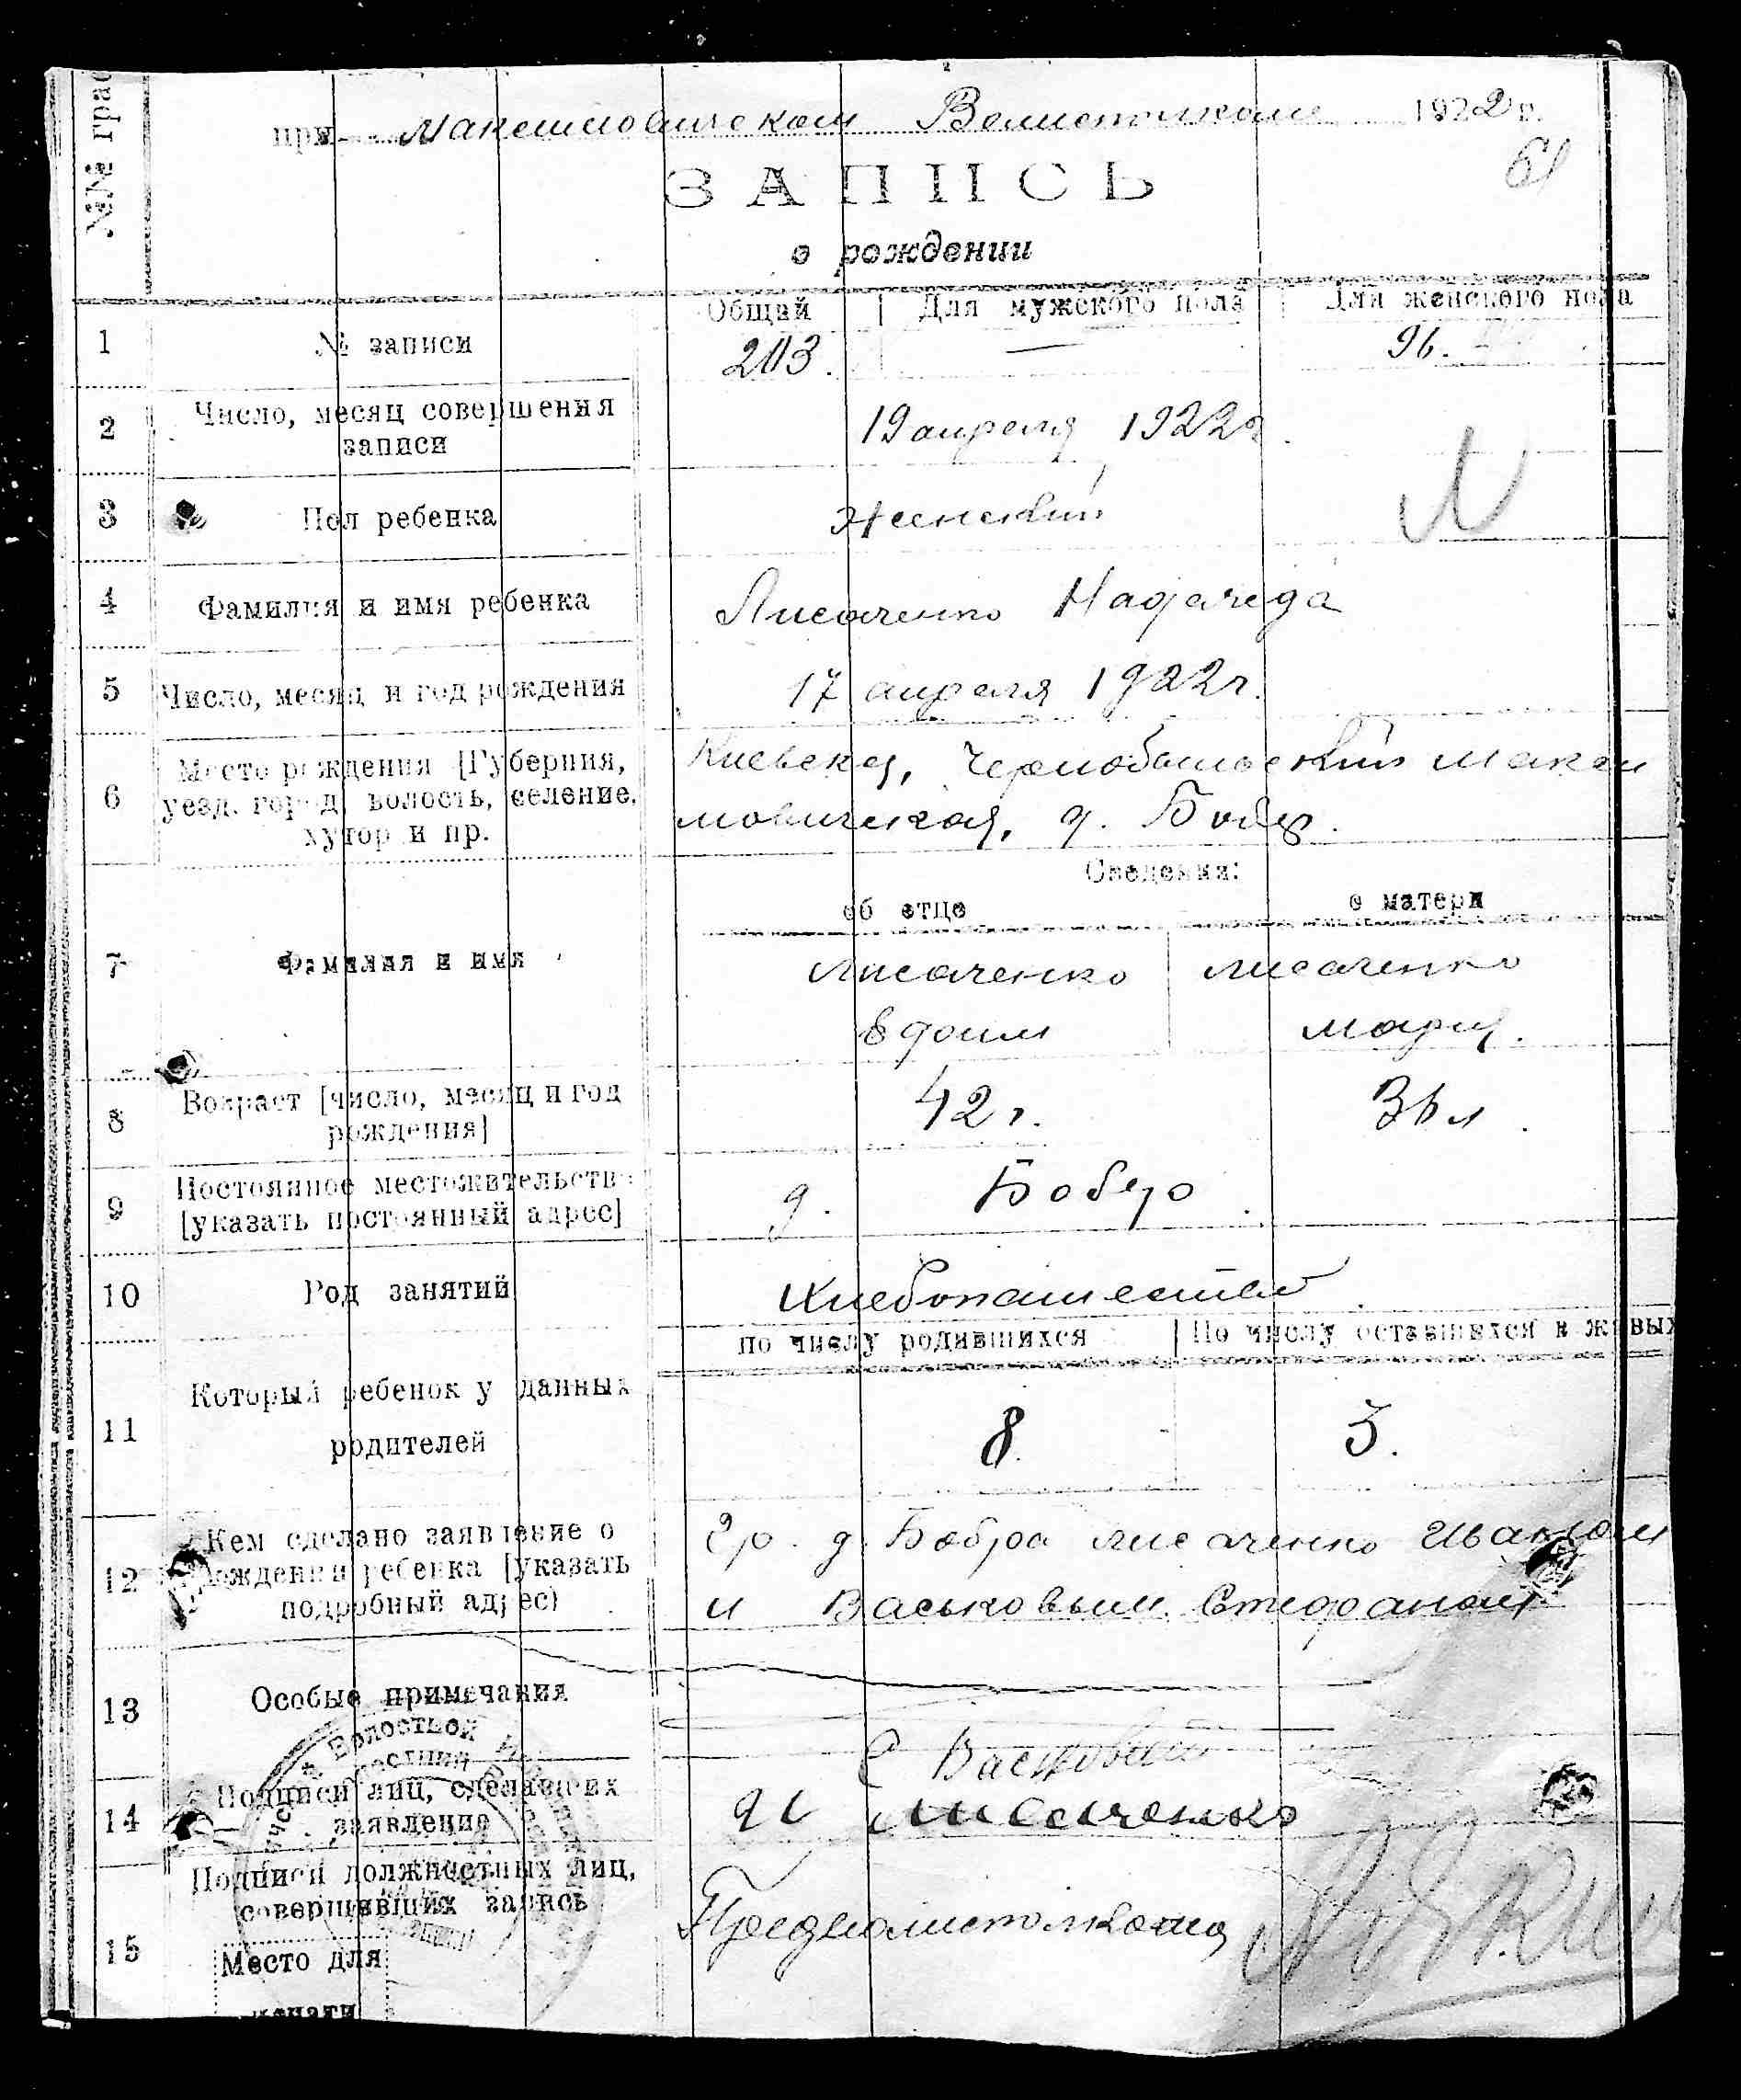 №№ граф
при Максимовическом Волисполкоме 1922 г.
61
ЗАПИСЬ
о рождении
Общий Для мужского пола Для женского пола
1 № записи 203. — 96.
2 Число, месяц совершения
записи
19 апреля 1922 г.
3 Пол ребенка Женский
4 Фамилия и имя ребенка Лисаченко Надежда
5 Число, месяц и год рождения 17 апреля 1922 г.
6 Место рождения [Губерния,
уезд, город, волость, селение,
хутор и пр.
Киевская, Чернобыльский Макси
мовическая, д. Бобер.
Сведения:
об отце о матери
7 Фамилия и имя Лисаченко Лисаченко
Мария.
8 Возраст [число, месяц и год
рождения]
42 г. 36 л.
9 Постоянное местожительство
[указать постоянный адрес]
д. Бобер.
10 Род занятий Хлебопашество
по числу родившихся По числу оставшихся в живых
11 Который ребенок у данных
родителей
8. 3.
12 Кем сделано заявление о
рождении ребенка [указать
подробный адрес)
Гр. д. Бобра Лисаченко Иваном
и Васьковым Стефаном
13 Особые примечания
14 Подписи лиц, сделавших
заявление
С Васковый
И Лисаченко
15 Подписи должностных лиц,
совершивших запись
Предволисполкома
Место для
печати